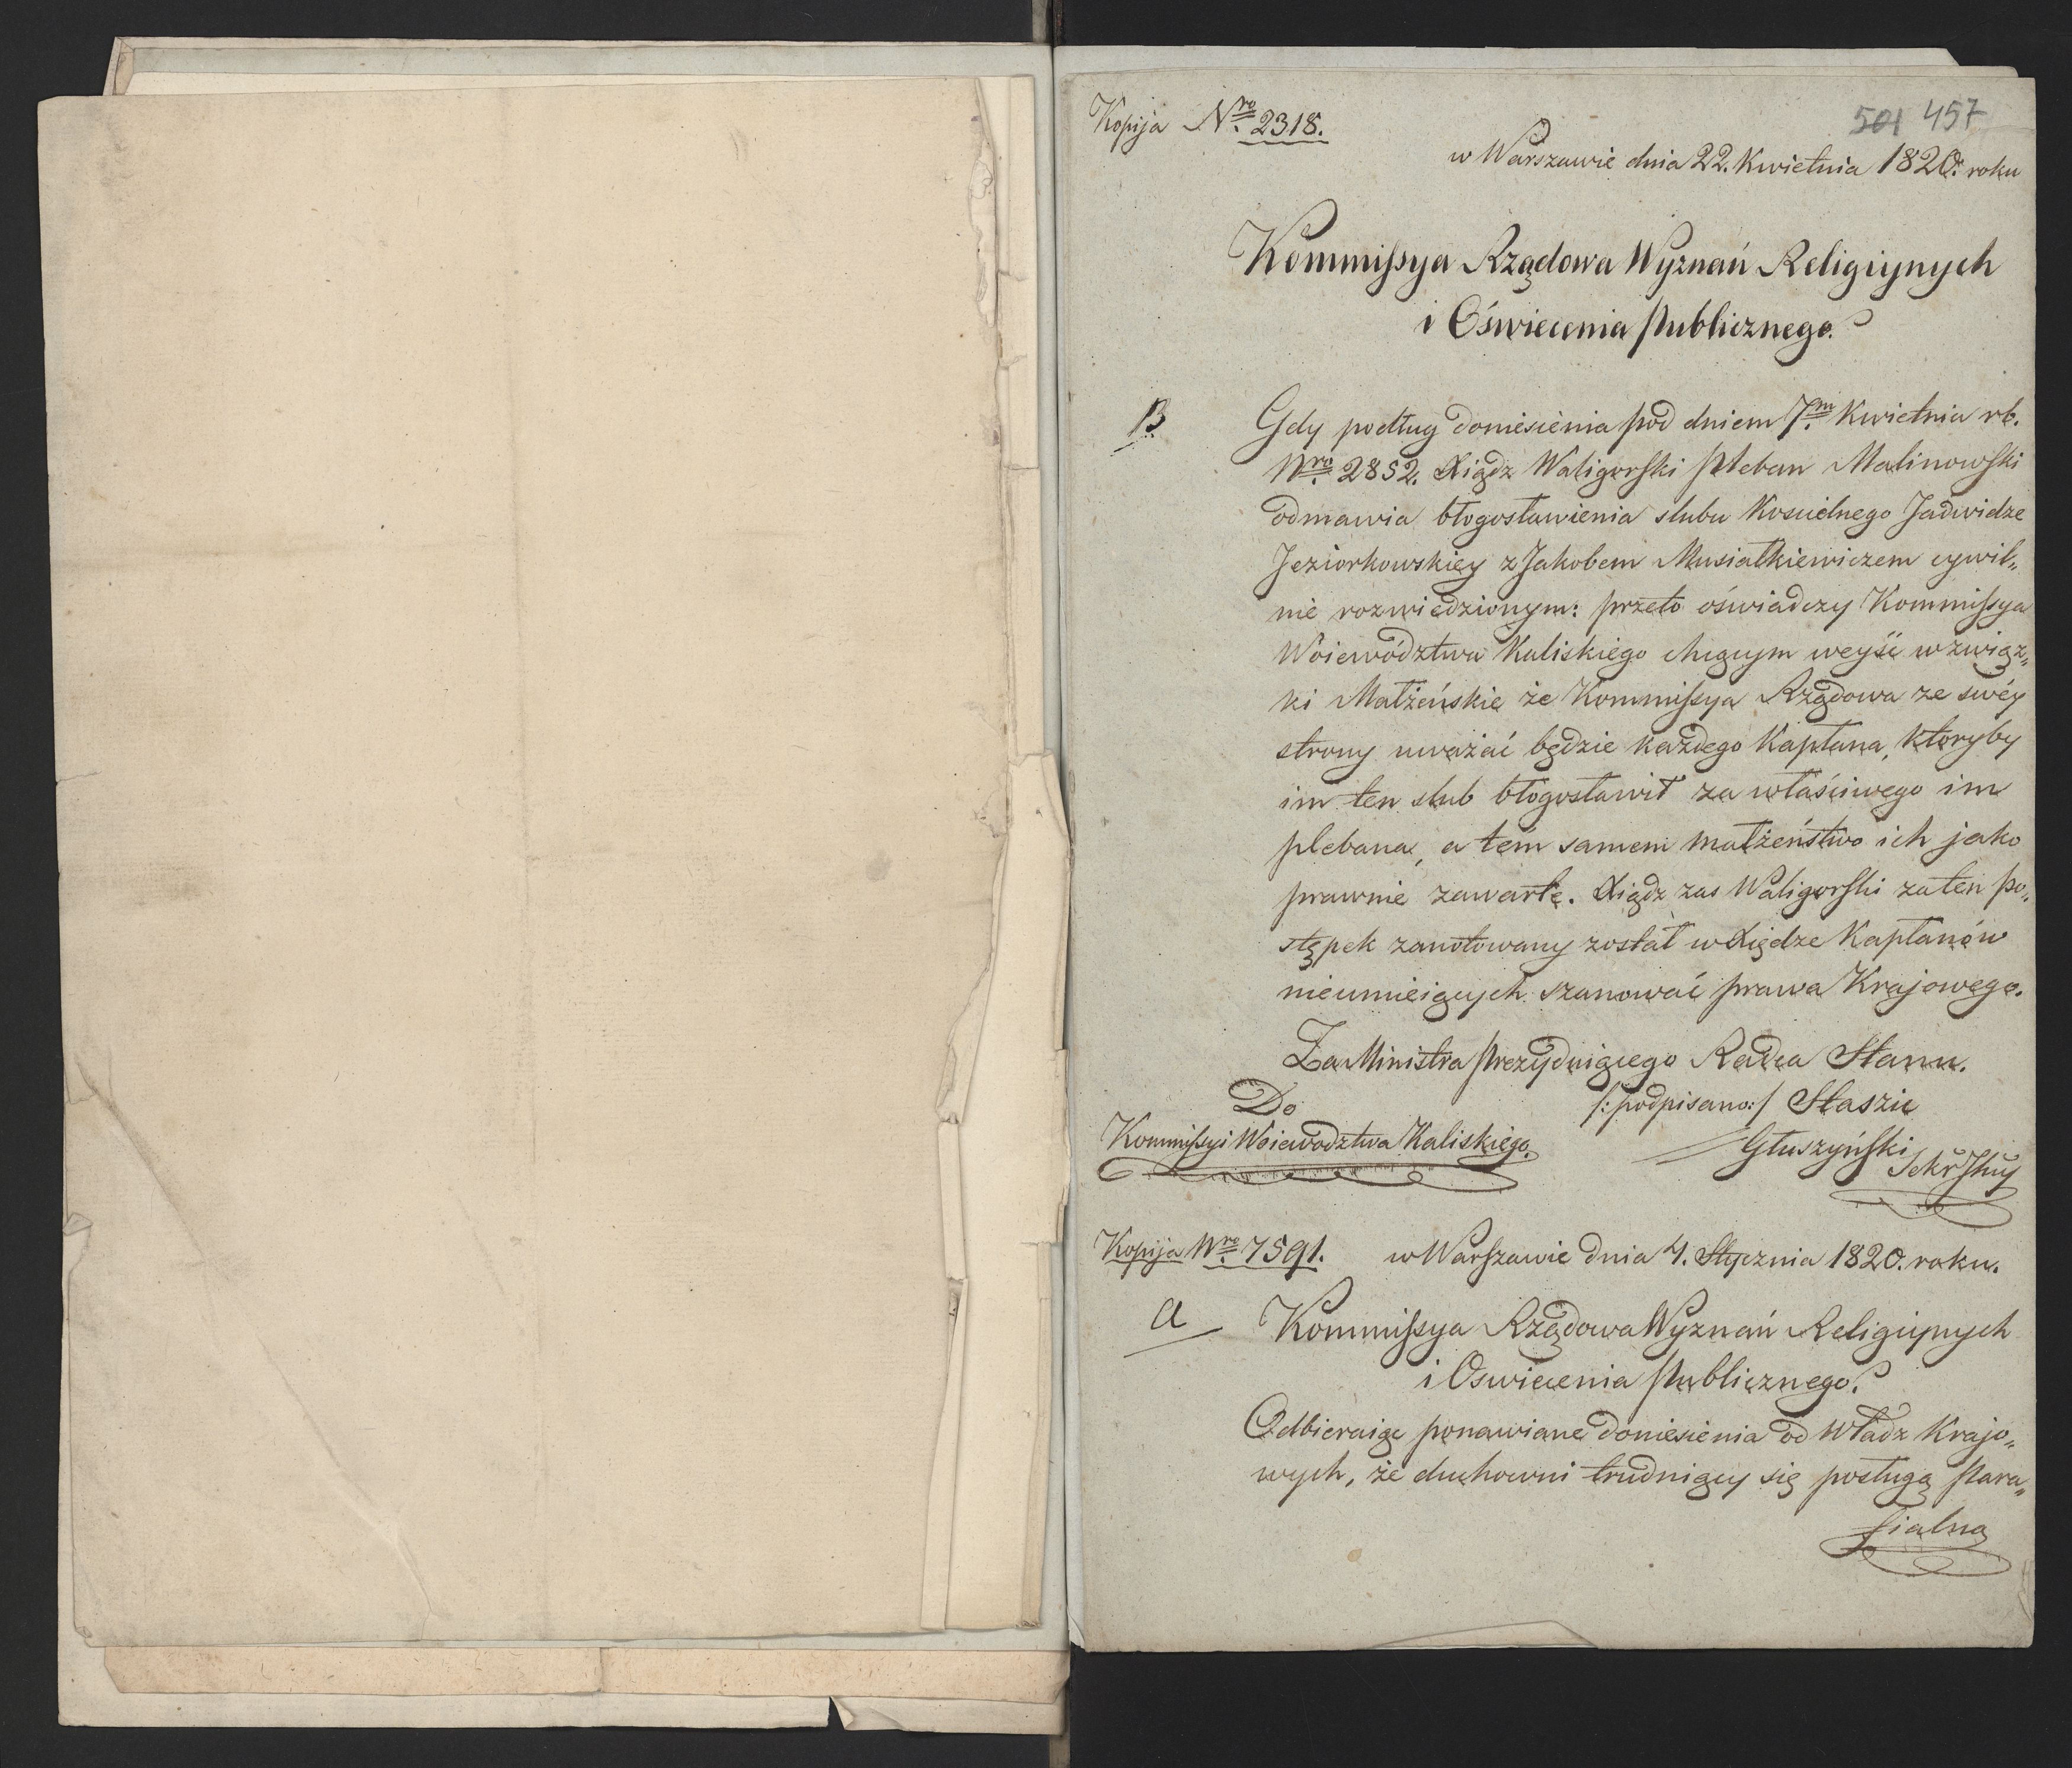 Kopija Nro 2318.
501 457
w Warszawie dnia 22. Kwietnia 1820. roku
Kommissya Rządowa Wyznań Religiynych
i Oświecenia Publicznego.
B
Gdy podług doniesienia pod dniem 7m Kwietnia rb.
Nro 2852. Xiądz Waligorski Pleban Malinowski
odmawia błogosławienia slubu Koscielnego Jadwidze
Jeziorkowskiey z Jakobem Musiałkiewiczem cywil„
nie rozwiedzionym: przeto oświadczy Kommissya
Woiewództwa Kaliskiego chcącym weyśś w związ„
ki Małżeńskie że Kommissya Rządowa ze swéy
strony uważać będzie każdego Kapłana, ktoryby
im ten slub błogosławił za właściwego im
plebana, a tém samem małżeństwo ich jako
prawnie zawarte. Xiądz zas Waligorski za ten po„
stępek zanotowany został w Xiędze Kapłanów
nieumieiących szanować prawa Krajowego.
Za Ministra Prezyduiącego Radca Stanu.
Do
/:podpisano:/ Staszic
Kommissyi Woiewodztwa Kaliskiego.
Głuszyński
Sekr Jlny
Kopija Nro 7591. w Warszawie dnia 4. Stycznia 1820. roku.
a
Kommissya Rządowa Wyznań Religiynych
i Oswiecenia Publicznego.
Odbieraiąc ponawiane doniesienia od Władz Krajo„
wych, że duchowni trudniący się posługą Para„
fialną